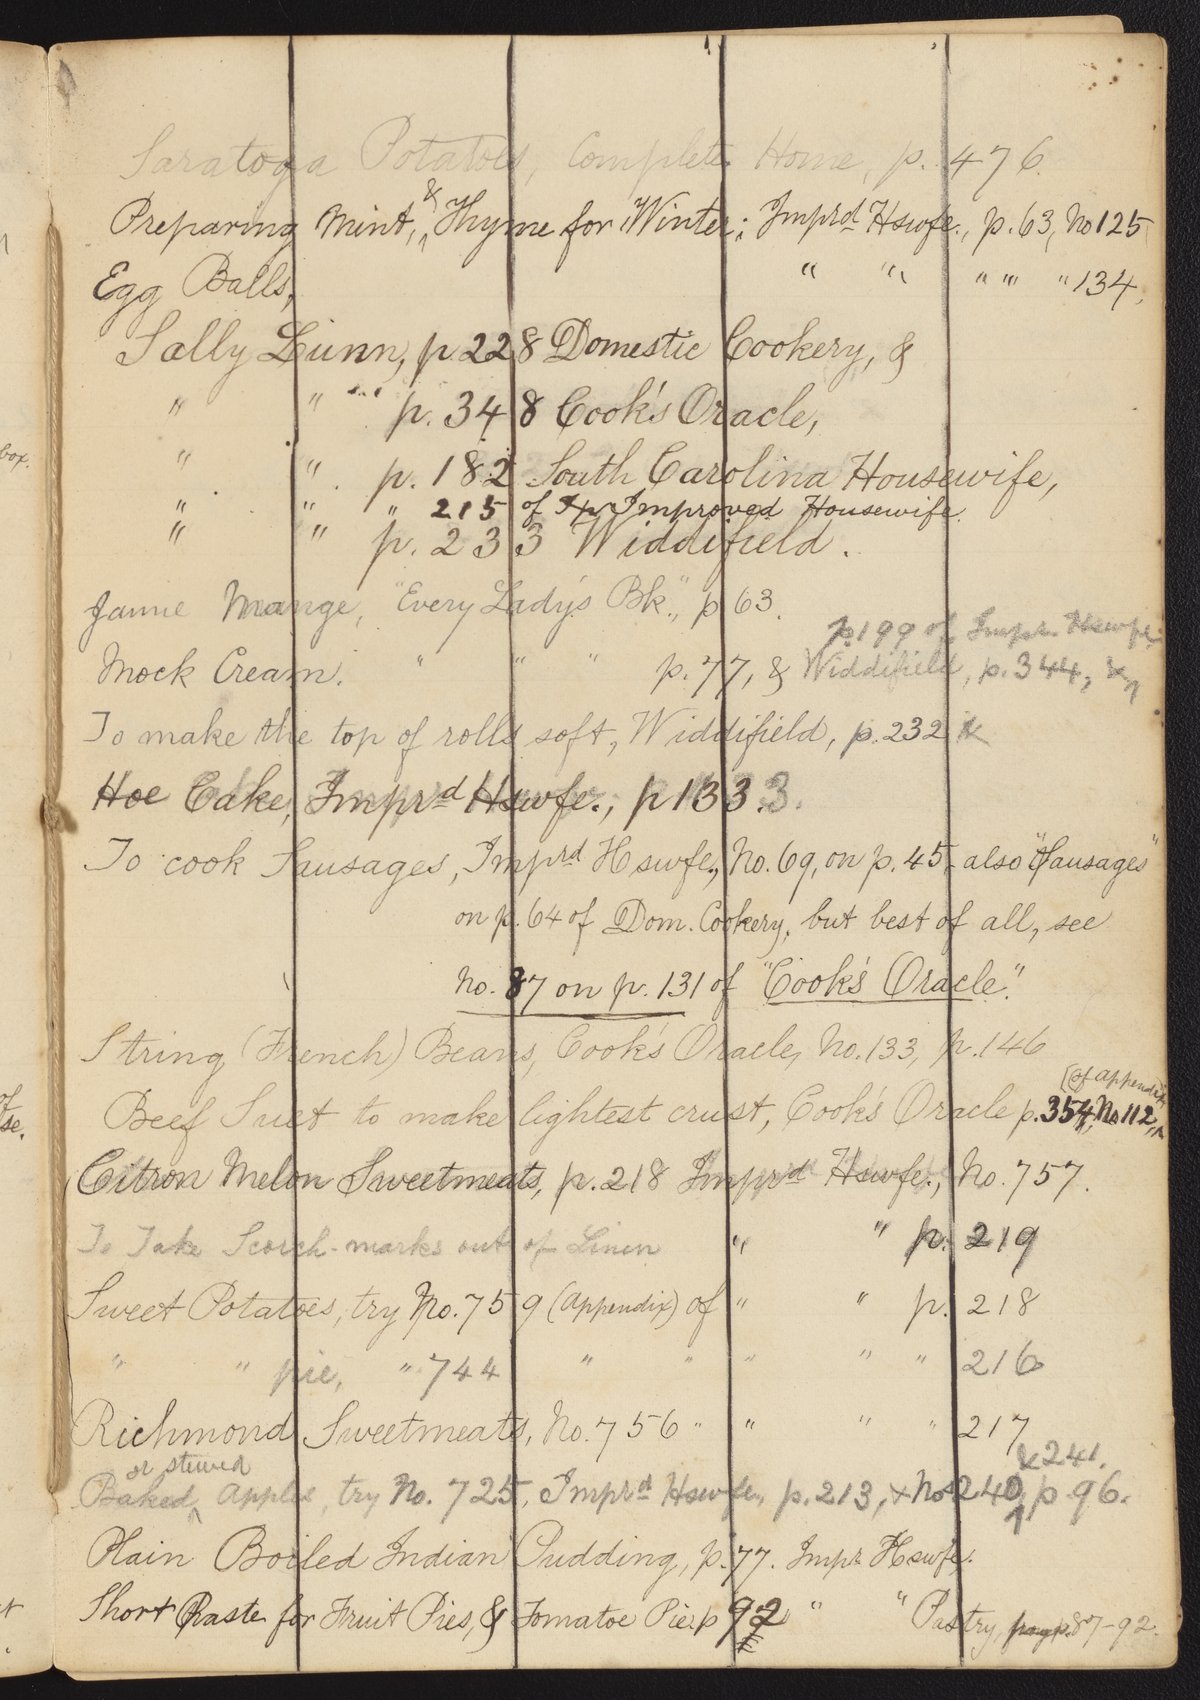 Saratoga Potatoes, Complete Home, p. 476.
Preparing Mint, & Thyme for Winter; Imprd Hswfe., p. 63, No 125
Egg Balls, " " " "' " 134.
Sally Lunn, p. 228 Domestic Cookery, &
" " "" p. 348 Cook's Oracle,
" " p. 182 South Carolina Housewife,
" " " 215 of Improved Housewife.
" " p. 233 Widdifield.
Jaune Mange, "Every Lady's Bk.", p 63.
p. 199 of Impr. Hswfe.
Mock Cream. " " " p. 77, & Widdifield, p. 344, &
To make the top of rolls soft, Widdifield, p. 232 &
Hoe Cake, Imprd Hswfe., p 133.
To cook Sausages, Imprd Hswfe., No. 69, on p. 45, also "Sausages"
on p. 64 of Dom. Cookery, but best of all, see
No. 87 on p. 131 of "Cook's Oracle".
String (French) Beans, Cook's Oracle, No. 133, p. 146
[of appendix
Beef Suet to make lightest crust, Cook's Oracle p. 354, No 112,
Citron Melon Sweetmeats, p. 218 Imprd Hswfe., No. 757.
To Take Scorch-marks out of Linen " " p. 219
Sweet Potatoes, try No. 759 (Appendix) of " " p. 218
" " pie, " 744 " " " " " 216
Richmond Sweetmeats, No. 756 " " " " 217
& 241.
or stewed
Baked Apples, try No. 725, Imprd Hswfe, p. 213, & Nos 240, p. 96.
Plain Boiled Indian Pudding, p. 77. Impr Hswfe.
Short Paste for Fruit Pies, & Tomatoe Pie p 92 " " Pastry, p. 87-92.